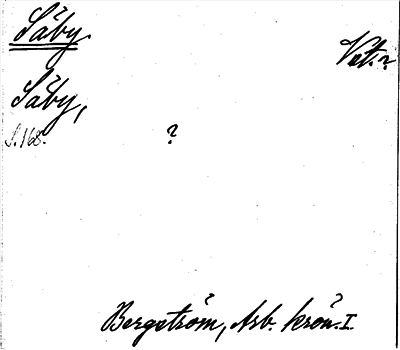 Säby.
Vst.?
Säby,
S. 168.
?
Bergström, Arb. krön. I.